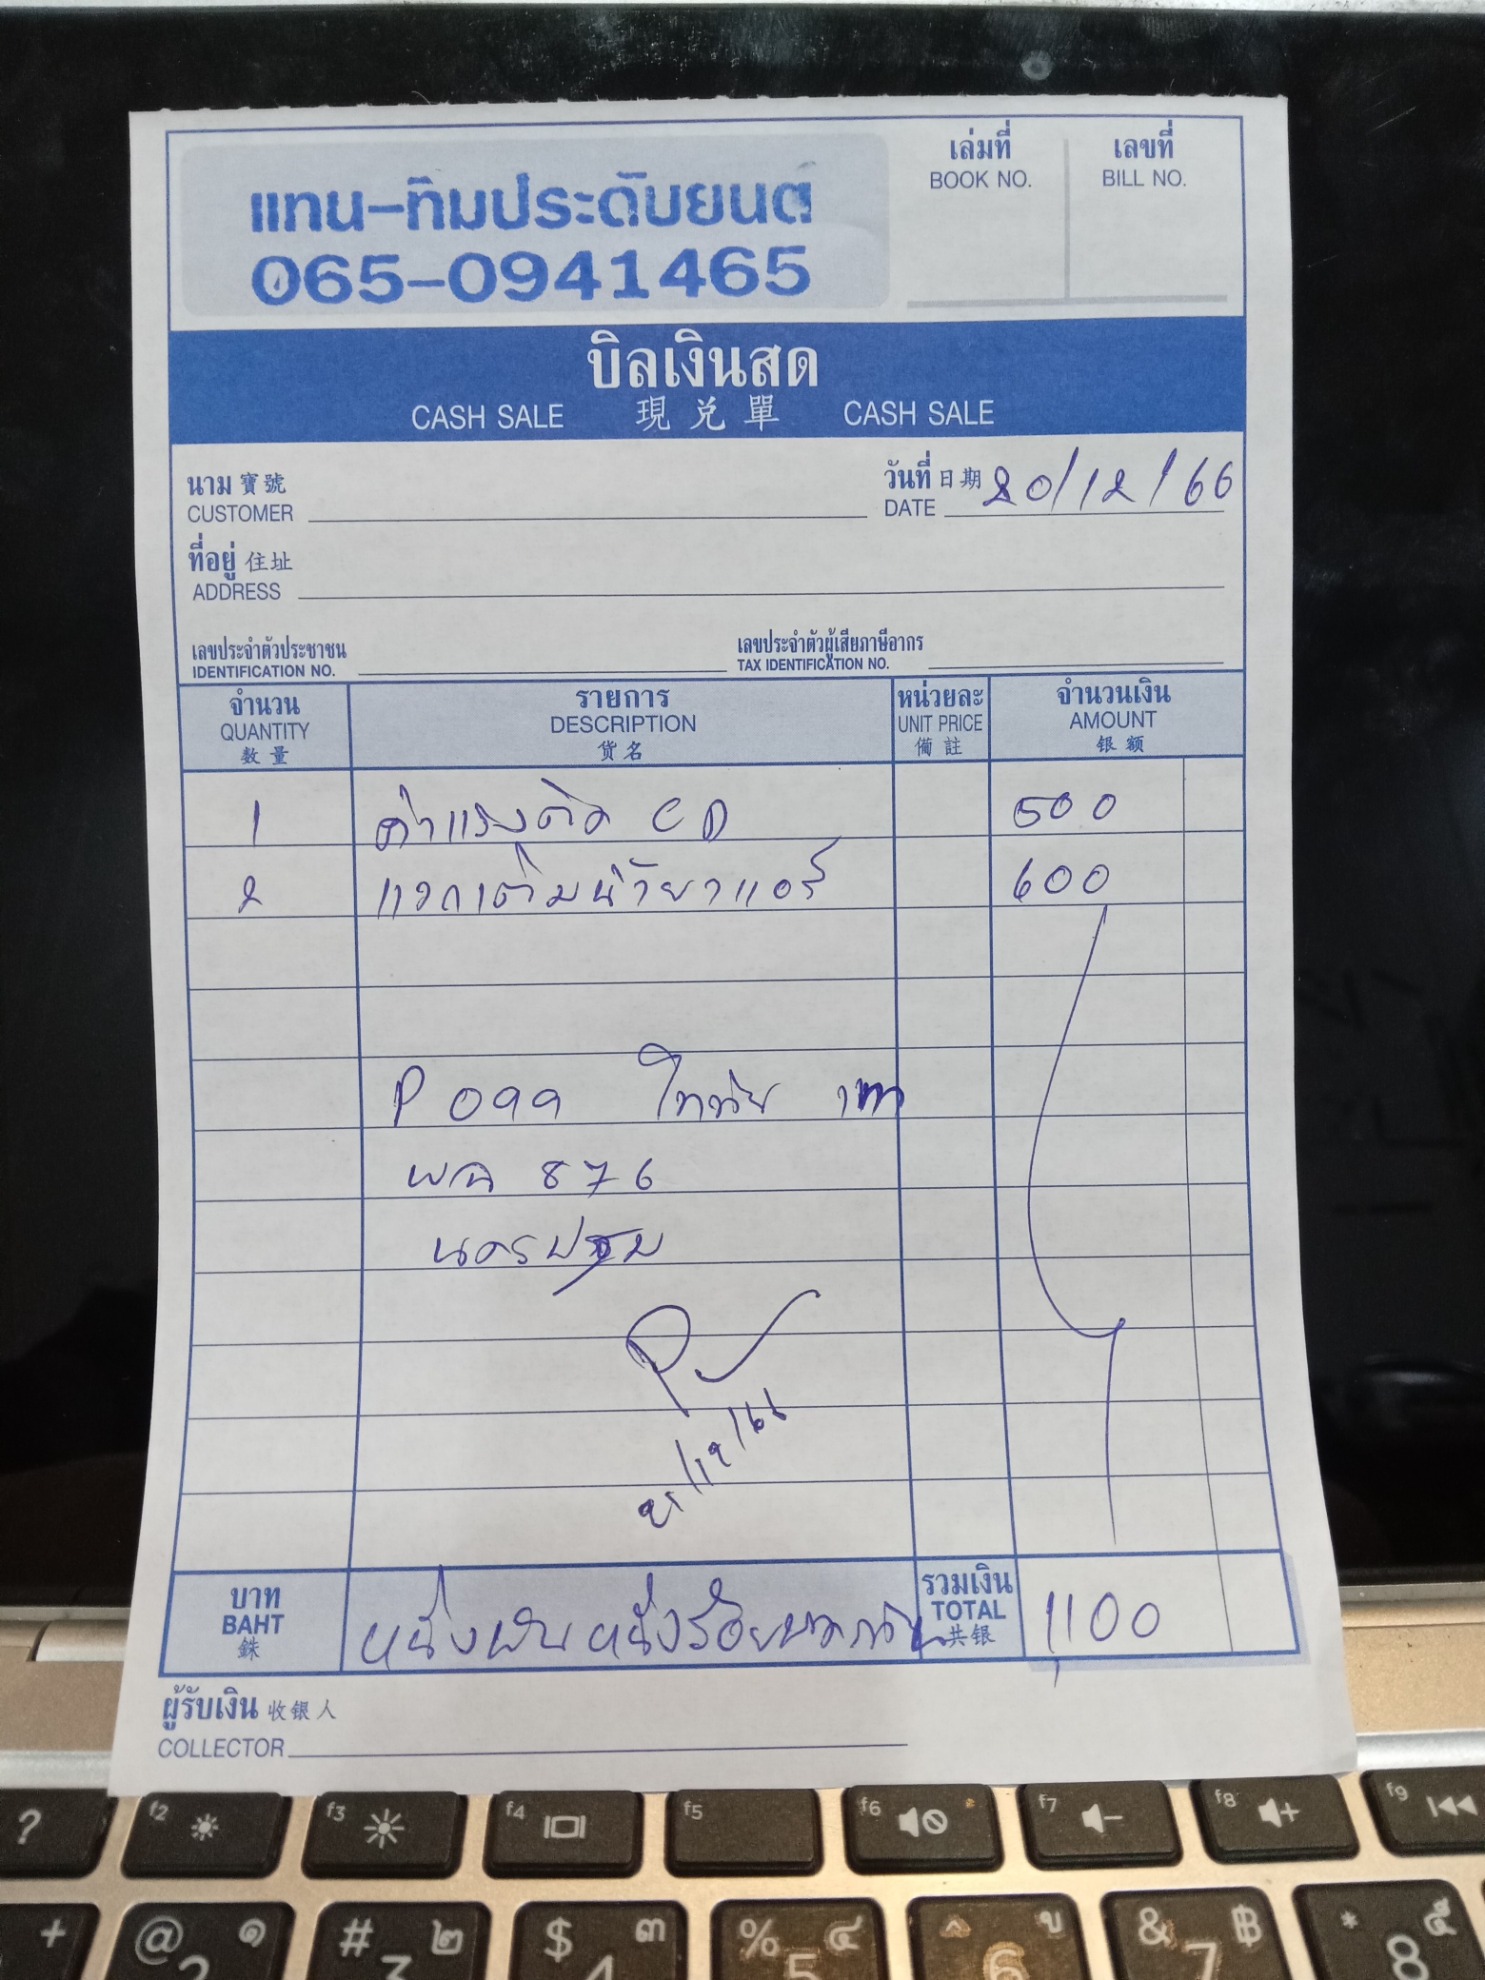 แทน-ทิมประดับยนต์
065-0941465
เล่มที่
BOOK NO.
เลขที่
BILL NO.
บิลเงินสด
CASH SALE 現兑單 CASH SALE
นาม 寶號
CUSTOMER
วันที่ 日期 20/12/66
DATE
ที่อยู่ 住址
ADDRESS
เลขประจำตัวประชาชน
IDENTIFICATION NO.
เลขประจำตัวผู้เสียภาษีอากร
TAX IDENTIFICATION NO.
จำนวน
QUANTITY
数量
รายการ
DESCRIPTION
货名
หน่วยละ
UNIT PRICE
備註
จำนวนเงิน
AMOUNT
银额
1 ค่าแรงติด CD 500
2 แวคเติมน้ำยาแอร์ 600
P 099
876
นครปฐม
บาท
BAHT
銖
หนึ่งพันหนึ่งร้อยบาทถ้วน
รวมเงิน
TOTAL
共银
1,100
ผู้รับเงิน 收银人
COLLECTOR
? f2 f3 f4 f5 f6 f7 f8 f9
+ @ ๑ 2 # ๒ 3 $ ๓ 4 % ๔ 5 ^ ู 6 & ฿ 7 * ๕ 8